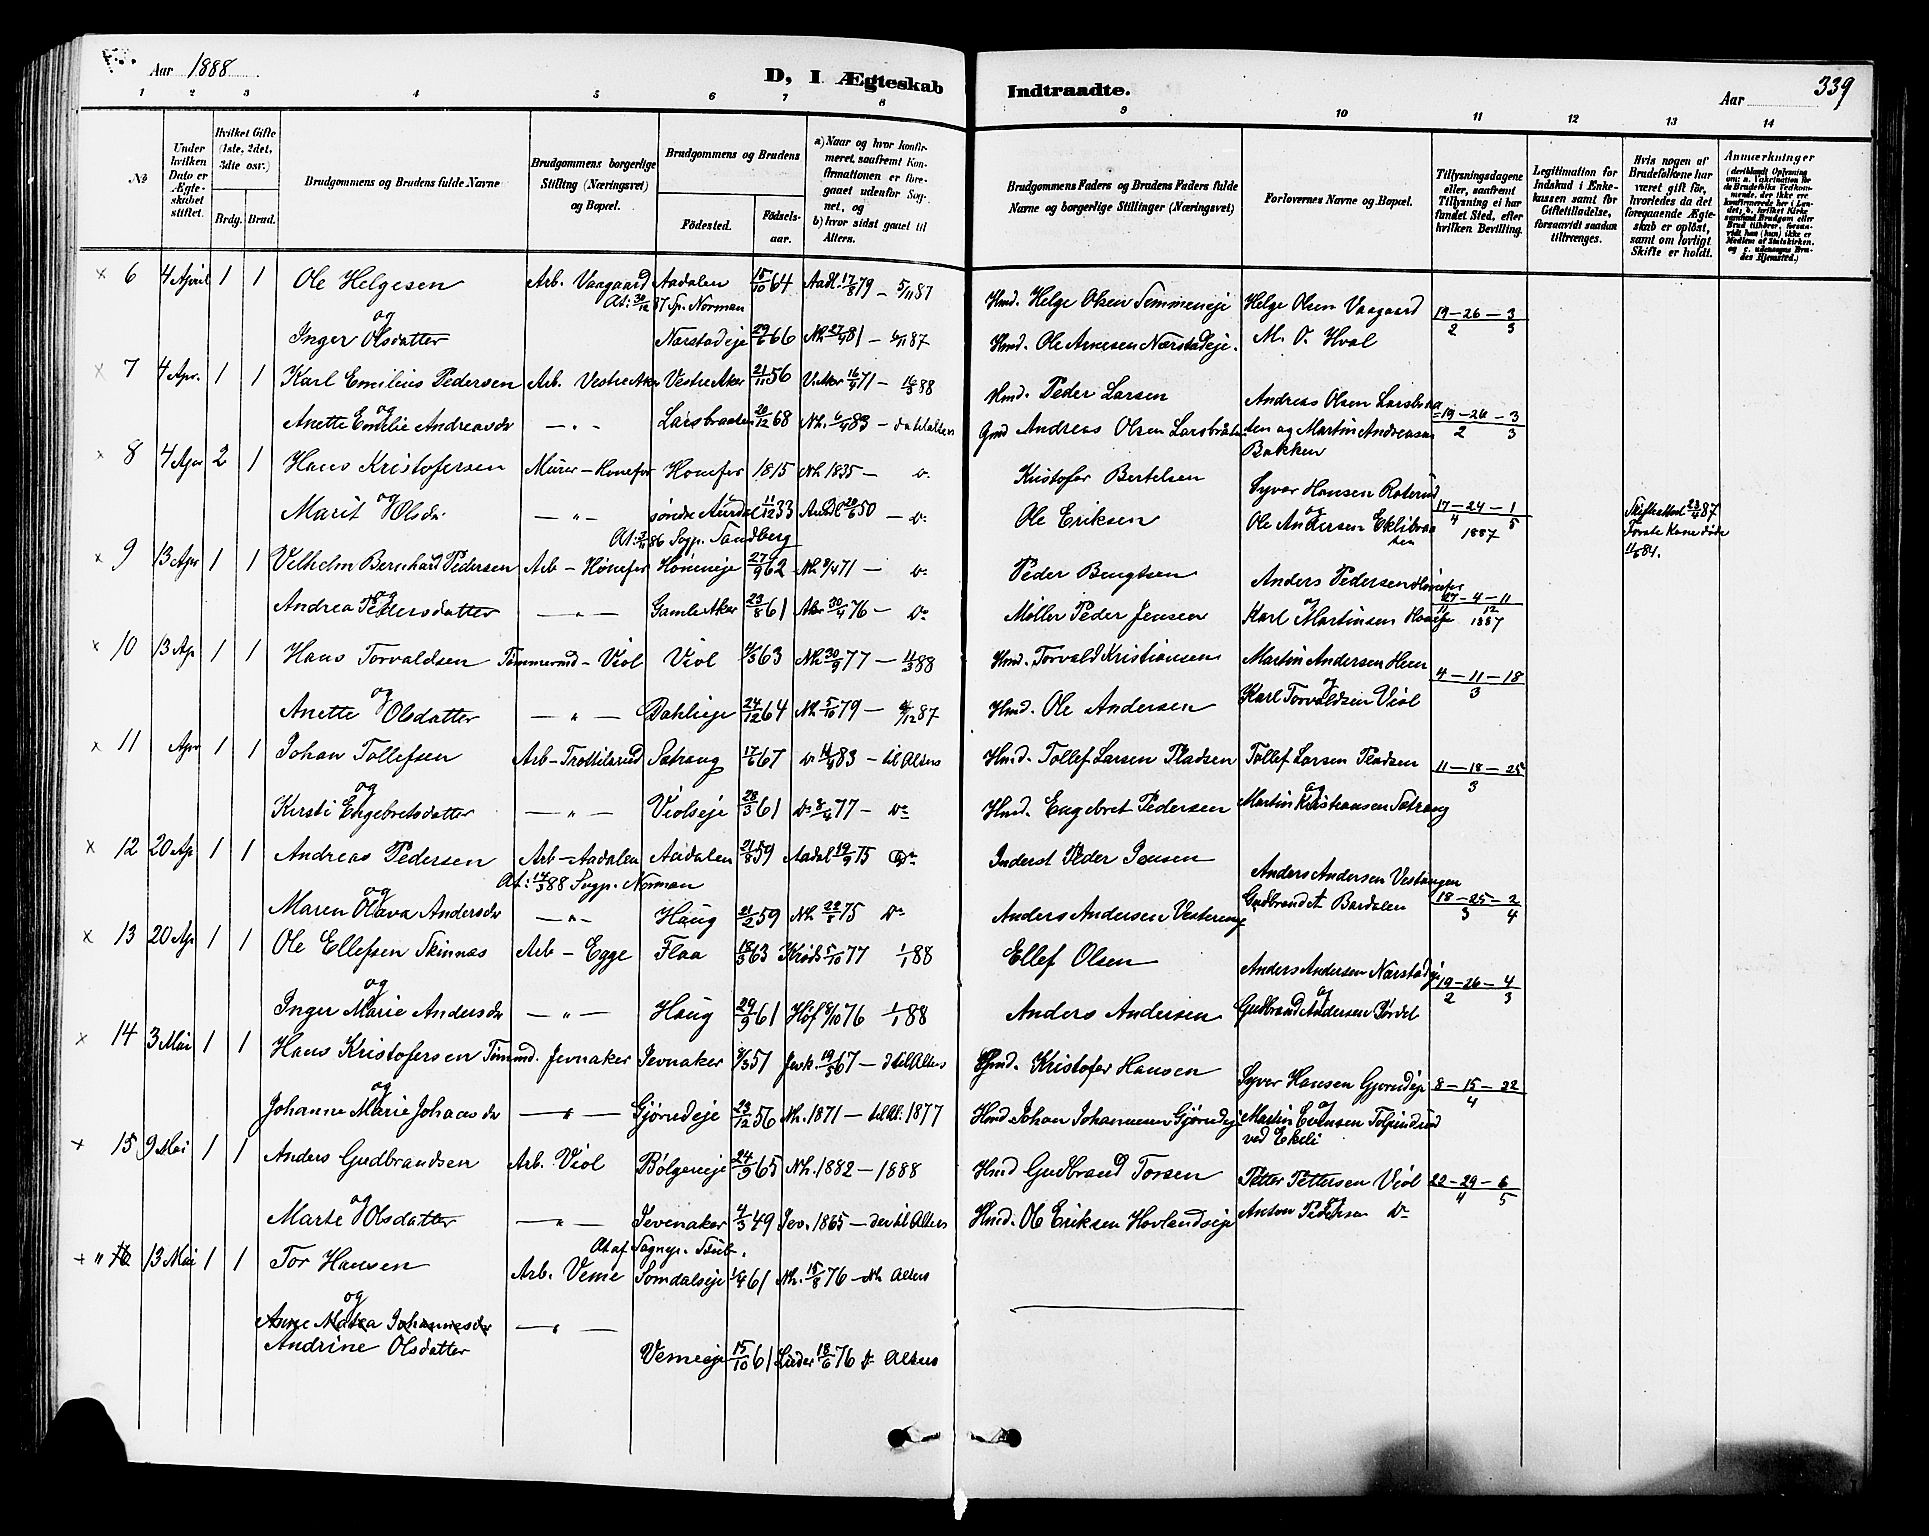 Aar 1888
D, I Ægteskab Indtraadte.
Aar 339
1 2 3 4 5 6 7 8 9 10 11 12 13 14
No
Under hvilken Dato er Ægteskabet stiftet.
Hvilket Gifte (1ste, 2det, 3die osv.)
Brdg. Brud.
Brudgommens og Brudens fulde Navne
Brudgommens borgerlige Stilling (Næringsvei) og Bopæl.
Brudgommens og Brudens
Fødested. Fødselsaar.
a) Naar og hvor konfirmeret, saafremt Konfirmationen er foregaaet udenfor Sognet, og
b) hvor sidst gaaet til Alters.
Brudgommens Faders og Brudens Faders fulde Navne og borgerlige Stillinger (Næringsvei)
Forlovernes Navne og Bopæl.
Tillysningsdagene eller, saafremt Tillysning ei har fundet Sted, efter hvilken Bevilling.
Legitimation for Indskud i Enkekassen samt for Giftetilladelse, forsaavidt saadan tiltrænges.
Hvis nogen af Brudefolkene har været gift før, hvorledes da det foregaaende Ægteskab er opløst, samt om lovligt Skifte er holdt.
Anmærkninger
x 6 4 April 1 1 Ole Helgesen Arb. Vaagaard Aadalen 15/10 64 Aadl. 17/8 79 – 5/11 87 Hmd. Helge Olsen Semmeneje Helge Olsen Vaagaard 19–26–3
At: 30/12 87 Sp. Norman 2 3
og
Inger Olsdatter Narstadeje 29/6 66 Nh 27/4 81 – 6/11 87 Hmd. Ole Arnesen Nærstadeje. M. O. Hval
x 7 4 Apr. 1 1 Karl Emilius Pedersen Arb. Vestre Aker Vestre Aker 21/11 56 V. Aker 16/4 71 – 16/3 88 Hmd. Peder Larsen Andreas Olsen Larsbraa
og 19–26–3
Anette Emilie Andreasdr –"– Larsbraaten 26/12 68 Nh. 6/4 83 – da til alters Gmd Andreas Olsen Larsbråten ten og Martin Andreasen 2 3
Bakken
x 8 4 Apr 2 1 Hans Kristofersen Murer – Hønefos Hønefos 1815 Nh. 1835 – do Kristofer Bertelsen Syver Hansen Raterud
og og 17–24–1
Marit Olsdr –"– søndre Aurdal 11/12 33 Aurdl 26/6 50 – do Ole Eriksen Ole Andersen Eklibraa 4 5
ten 1887
Skifteattest 23/4 87
Første Kone døde
11/5 84.
At: 86 Sogp. Sandberg
x 9 13 Apr 1 1 Velhelm Bernhard Pedersen Arb – Hønefos Høneneje 27/9 62 Nh. 9/4 71 – do Peder Bengtsen Anders Pedersen Hønefos
og og 27–4–11
Andrea Pedersdatter –"– Gamle Aker 23/8 61 Aker 30/4 76 – Do Møller Peder Jensen Karl Martinsen 11 12
1887
x 10 13 Ap 1 1 Hans Torvaldsen Tømmermd – Viol Viol 63 Nh. 30/9 77 – 11/3 88 Hmd. Torvald Kristiansen Martin Andersen Heen
og og 4–11–18
Anette Olsdatter –"– Dahleje 24/12 64 Nh. 5/10 79 – 4/12 87 Hmd. Ole Andersen Karl Torvaldsen Viol 3
x 11 Apr 1 1 Johan Tollefsen Arb – Trottilsrud Sætrang 17/6 67 do 14/4 83 – til Alters Hmd. Tollef Larsen Pladsen Tollef Larsen Pladsen 11–18–25
og og 3
Kersti Engebretsdatter –"– Violseje 28/3 61 Do 8/4 77 – Do Hmd. Engebret Pedersen Martin Kristiansen Sætrang
x 12 20 Ap 1 1 Andreas Pedersen Arb – Aadalen Aadalen 21/8 59 Aadal 19/9 75 Do Inderst Peder Jensen Anders Andersen Vestangen
At: 14/3 88 Sogp. Norman
og 18–25–2
Maren Olava Andersdr –"– Haug 21/2 59 Nh. 22/8 75 Do Anders Andersen Vestereng Gudbrand A Bardalen 3 4
x 13 20 Ap 1 1 Ole Ellefsen Skinnas Arb – Egge Flaa 18/3 63 Krøds 5/10 77 1/1 88 Ellef Olsen Anders Andersen Narstadeje
og og 19–26–4
Inger Marie Andersdr –"– Haug 29/9 61 Høf 8/10 76 1/1 88 Anders Andersen Gudbrand Andersen 2 3
x 14 3 Mai 1 1 Hans Kristofersen Tømmd. Jevnaker Jevnaker 51 Jevk. 19/5 67 – d til Alters Hmd. Kristofer Hansen Syver Hansen Gjørudeje 8–15–22
og og 4
Johanne Marie Johansdr –"– Gjørudeje 23/12 56 Nh. 1871 – til Al. 1877 Hmd Johan Johannesen Gjørudeje Martin Evensen Tolpinrud
ved Ekeli
x 15 9 Mai 1 1 Anders Gudbrandsen Arb. Viol Bølgeneje 24/9 65 Nh. 1882 – 1888 Hmd Gudbrand Torsen Petter Pettersen Viol 22–29–6
og og 4 5
Marte Olsdatter –"– Jevenaker 4/3 49 Jev. 1865 – der til Alters Hmd. Ole Eriksen Hovlandseje Anton Pedersen Do
At af Sognepr.
x " 16 13 Mai 1 1 Tor Hansen Arb. Veme Somdalseje 1/4 61 Nh. 15/8 76 – Nh Alters
og
Anne Matea Johannesdr –"–
Andrine Olsdatter Vemeeje 15/10 61 Lieder 18/6 76 Do Alters